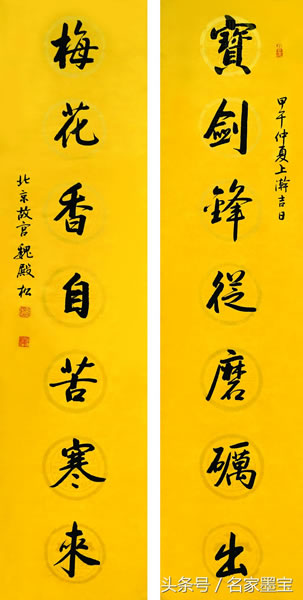 寶劍鋒從磨礪出
甲午仲夏上澣吉日
梅花香自苦寒來
北京故宫魏殿松
头条号／名家墨宝